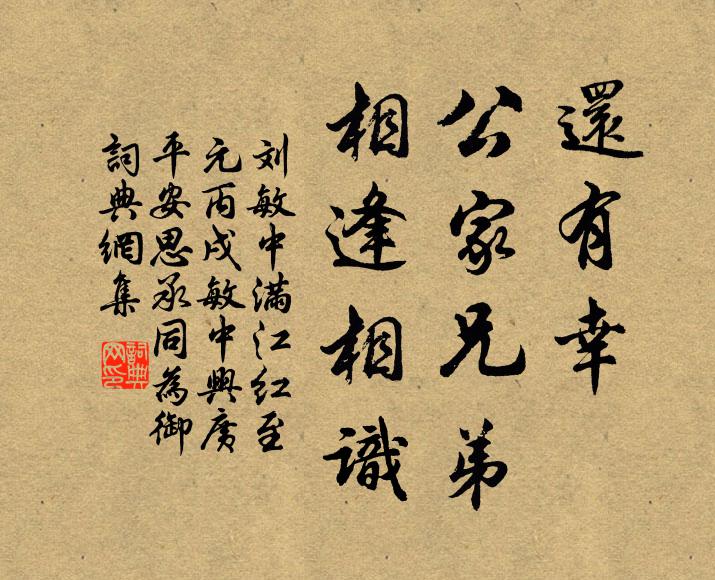 還有幸
公家兄弟
相逢相識
刘敏中满江红至
元丙戌敏中興廣
平安思承同為御
詞典網集
詞典网印